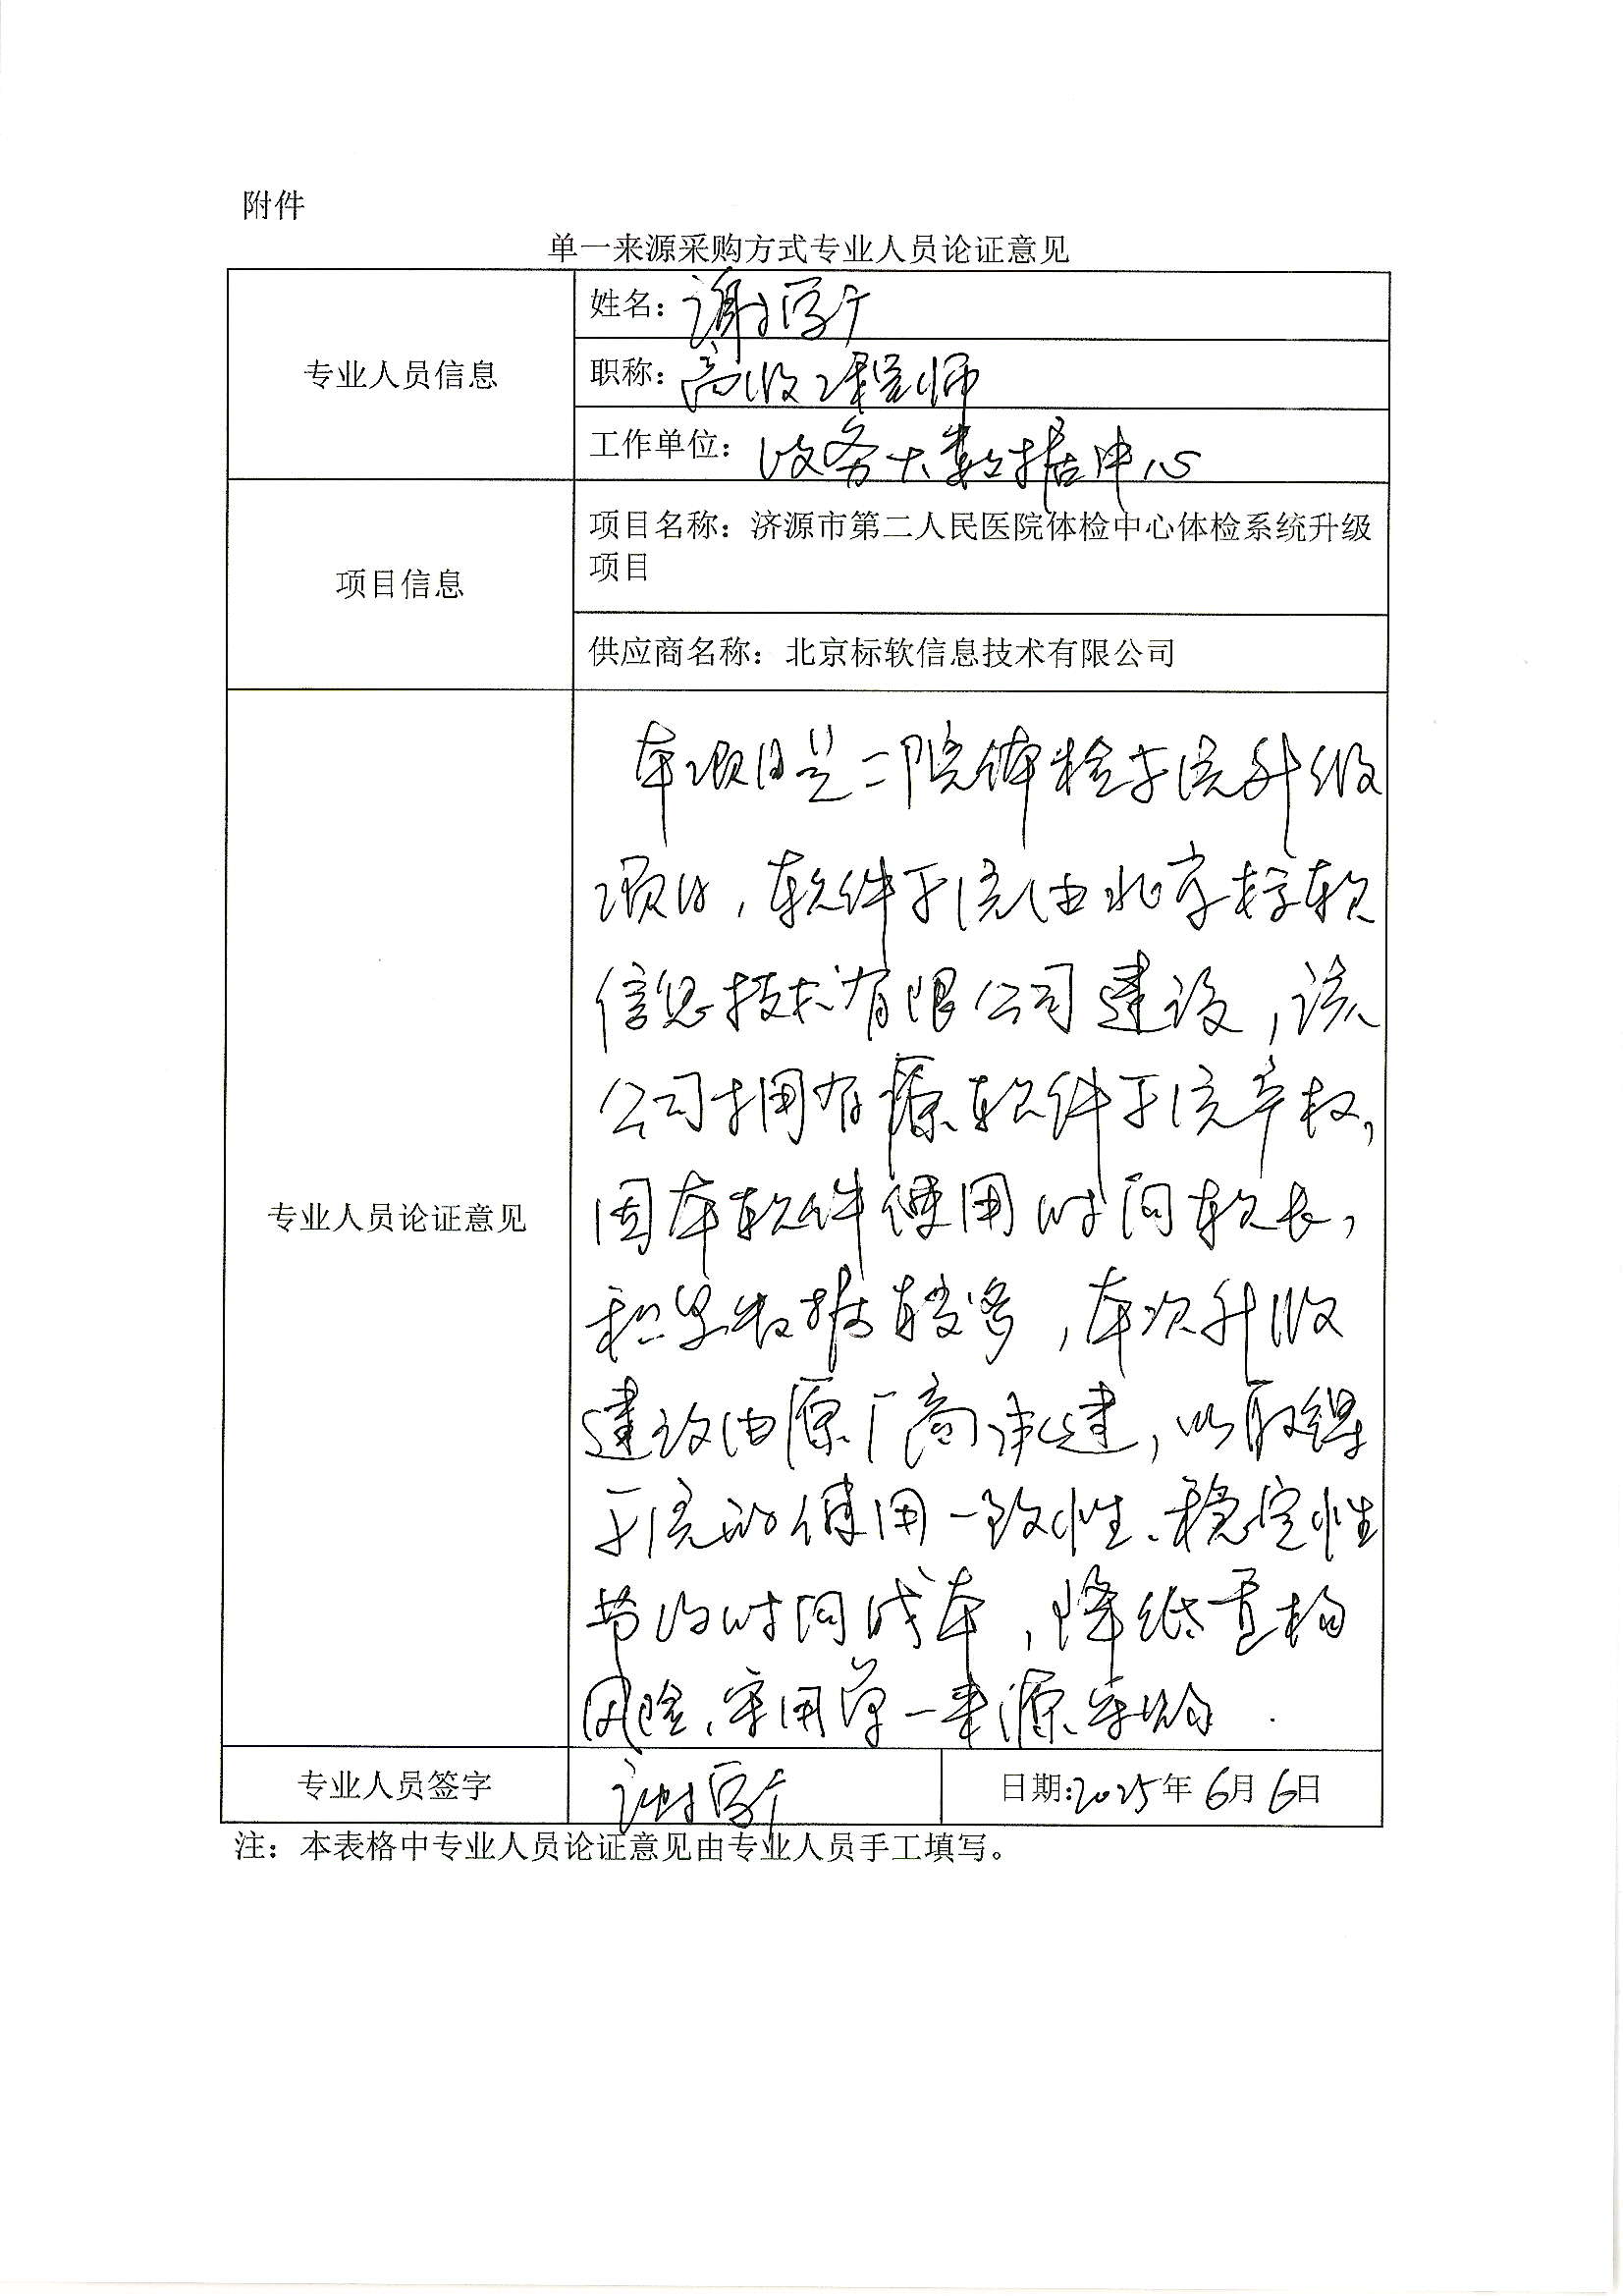 附件
单一来源采购方式专业人员论证意见
专业人员信息
姓名：谢
职称：高级工程师
工作单位：政务大数据中心
项目信息
项目名称：济源市第二人民医院体检中心体检系统升级
项目
供应商名称：北京标软信息技术有限公司
专业人员论证意见
本项目是二院体检系统升级
项目，软件系统由北京标软
信息技术有限公司建设，该
公司拥有原软件系统产权，
因本软件使用时间较长，
积累数据较多，本次升级
建设由原厂商承建，以取得
系统的使用一致性、稳定性
节约时间成本，降低重构
风险、采用单一来源采购.
专业人员签字
谢
日期:2025年6月6日
注：本表格中专业人员论证意见由专业人员手工填写。